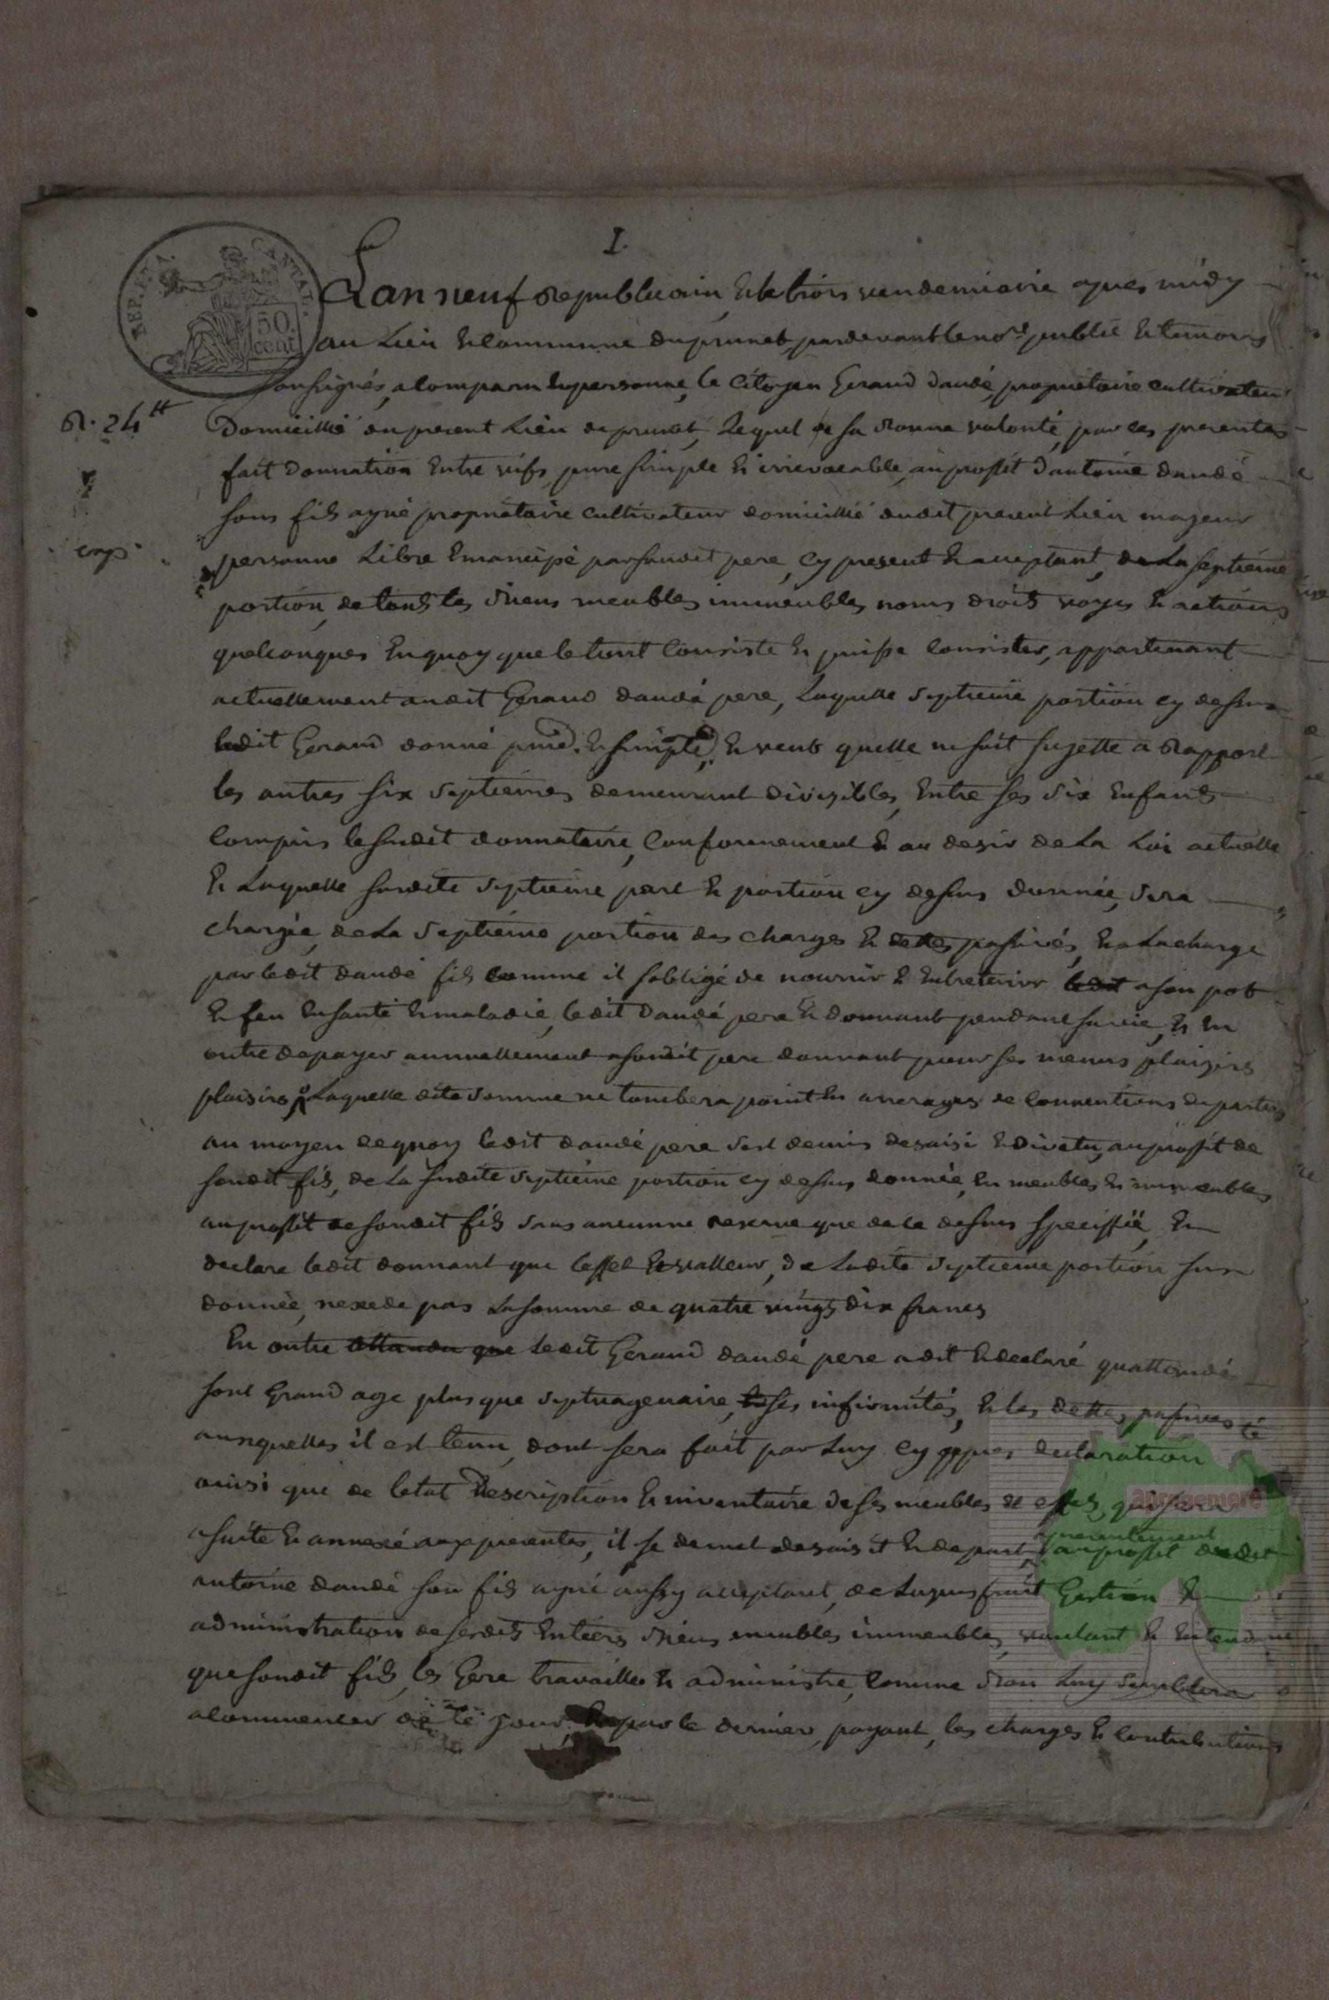 1.
REP. ETA.
CANTAL.
50.
cent.
Lan neuf Republicain, & le trois vendemiaire apres midy
au Lieu & Commune du prunet, pardevant le no.re public & temoins
Soussignés, a Comparu en personne, le Citoyen Geraud daudé, proprietaire cultivateur
R. 24tt
Domicillié du present Lieu de prunet, Lequel de sa bonne volonté, par ces presentes
fait donnation Entre vifs, pure simple & irrevocable, au proffit d'antoine daudé
sons fils ayné proprietaire Cultivateur domicillié dudit present Lieu majeur
exp
personne Libre Emancipé par sondit pere, Cy present & acceptant, de La septieme
portion, de touts les biens meubles immeubles noms droits voyes & actions
quelconques En quoy que le tout Consiste & puisse Consister, appartenant
actuellement audit Geraud daudé pere, Laquelle Septieme portion cy dessus
ledit Geraud donne pure & simple, & veut quelle ne soit sujette a Rapport
les autres six septiemes demeurant divisibles, Entre ses six Enfants
Compris le susdit donnataire, Conformement au desir de La Loi actuelle
& Laquelle susdite Septieme part & portion cy dessus donnée, Sera
chargée, de La Septieme portion des Charges & dettes passives, & a La charge
par ledit daudé fils Comme il s'obligé de nourrir & Entretenir ledit a son pot
& feu En santé & maladie, ledit Daudé pere & donnant pendant sa vie, & En
outre de payer annuellement a sondit pere donnant pour ses menus plaisirs
plaisirs, Laquelle dite Somme ne tombera point En arrerages de Conventions de parties
au moyen de quoy ledit daudé pere Sest demis desaisi & Divetu, au proffit de
sondit fils, de La susdite Septieme portion cy dessus donnée, En meubles & immeubles
au proffit de sondit fils sans aucunne reserve que de ce dessus speciffié, &
declare ledit donnant que leffet & valleur, de Ladite Septieme portion sus
donnée, nexede pas La somme de quatre vingts dix francs
En outre attandu que ledit Geraud daudé pere a dit & declaré quattandu
sont Grand age plus que septuagenaire, ses infirmités, & les dettes passives
auxquelles il est tenu, dont sera fait par Luy Cy appres declaration
ainsi que de letat Description & inventaire de ses meubles & effets, que
a suite & annexé aux presentes, il se demet desaisit & depart au proffit dudit
antoine daudé son fils ayné aussy acceptant, de Lusuffruit Gestion &
administration de sesdits Entiers biens meubles immeubles, voulant & Entend
que sondit fils, les Gere travaille & administre, Comme bon Luy Semblera
a Commencer de ce jour, par le dernier, payant, les charges & Contributions